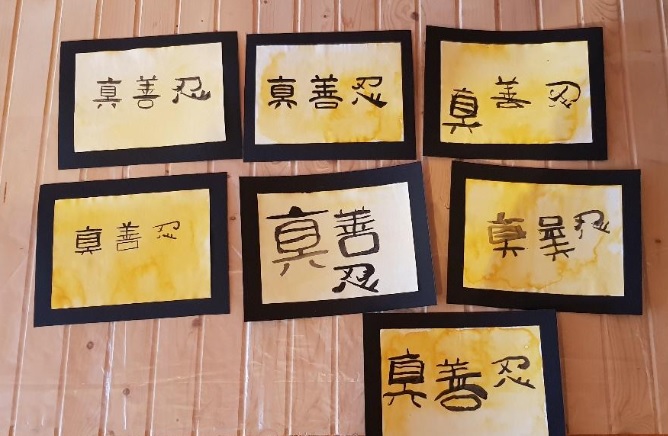 真善忍
真善忍
真善忍
真善忍
真善
忍
真 忍
真善忍